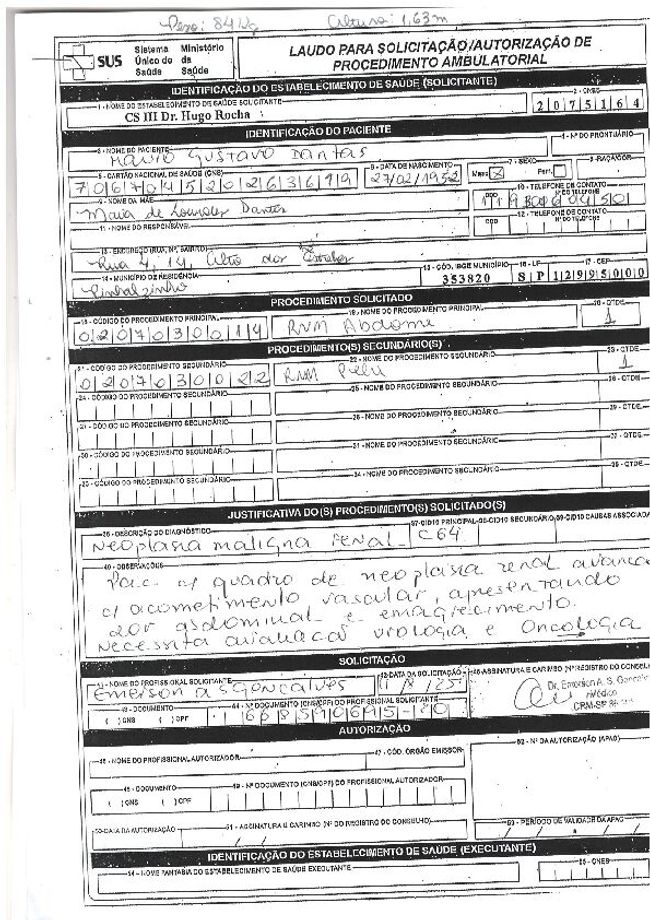 Peso: 84 Kg Altura: 1,63 m
SUS Sistema Único de Saúde Ministério da Saúde
LAUDO PARA SOLICITAÇÃO/AUTORIZAÇÃO DE PROCEDIMENTO AMBULATORIAL
IDENTIFICAÇÃO DO ESTABELECIMENTO DE SAÚDE (SOLICITANTE)
1 - NOME DO ESTABELECIMENTO DE SAÚDE SOLICITANTE 2 - CNES
CS III Dr. Hugo Rocha 2075164
IDENTIFICAÇÃO DO PACIENTE
3 - NOME DO PACIENTE 4 - Nº DO PRONTUÁRIO
Mauro Gustavo Dantas
5 - CARTÃO NACIONAL DE SAÚDE (CNS) 6 - DATA DE NASCIMENTO 7 - SEXO 8 - RAÇA/COR
27/02/1952 Masc. X Fem.
9 - NOME DA MÃE 10 - TELEFONE DE CONTATO
DDD Nº DO TELEFONE
Maria de Lourdes Dantas 11
11 - NOME DO RESPONSÁVEL 12 - TELEFONE DE CONTATO
DDD Nº DO TELEFONE
13 - ENDEREÇO (RUA, Nº, BAIRRO)
Rua 4, 14, Alto das
14 - MUNICÍPIO DE RESIDÊNCIA 15 - CÓD. IBGE MUNICÍPIO 16 - UF 17 - CEP
Pinhalzinho 353820 SP 12995000
PROCEDIMENTO SOLICITADO
18 - CÓDIGO DO PROCEDIMENTO PRINCIPAL 19 - NOME DO PROCEDIMENTO PRINCIPAL 20 - QTDE
0207030014 RNM Abdome 1
PROCEDIMENTO(S) SECUNDÁRIO(S)
21 - CÓDIGO DO PROCEDIMENTO SECUNDÁRIO 22 - NOME DO PROCEDIMENTO SECUNDÁRIO 23 - QTDE
0207030022 RNM Pelve 1
24 - CÓDIGO DO PROCEDIMENTO SECUNDÁRIO 25 - NOME DO PROCEDIMENTO SECUNDÁRIO 26 - QTDE
27 - CÓDIGO DO PROCEDIMENTO SECUNDÁRIO 28 - NOME DO PROCEDIMENTO SECUNDÁRIO 29 - QTDE
30 - CÓDIGO DO PROCEDIMENTO SECUNDÁRIO 31 - NOME DO PROCEDIMENTO SECUNDÁRIO QTDE
33 - CÓDIGO DO PROCEDIMENTO SECUNDÁRIO 34 - NOME DO PROCEDIMENTO SECUNDÁRIO QTDE
JUSTIFICATIVA DO(S) PROCEDIMENTO(S) SOLICITADO(S)
36 - DESCRIÇÃO DO DIAGNÓSTICO 37 - CID10 PRINCIPAL 38 - CID10 SECUNDÁRIO 39 - CID10 CAUSAS ASSOCIADA
Neoplasia maligna renal C64
40 - OBSERVAÇÕES
Pac. c/ quadro de neoplasia renal avança
c/ acometimento vascular, apresentando
dor abdominal e emagrecimento.
Necessita avaliação urologia e Oncologia
SOLICITAÇÃO
41 - NOME DO PROFISSIONAL SOLICITANTE 42 - DATA DA SOLICITAÇÃO 45 - ASSINATURA E CARIMBO (Nº REGISTRO DO CONSELH
Emerson AS Gonçalves
Dr. Emerson A. S. Goncalv
Médico
CRM-SP
43 - DOCUMENTO 44 - Nº DOCUMENTO (CNS/CPF) DO PROFISSIONAL SOLICITANTE
( ) CNS ( ) CPF
AUTORIZAÇÃO
46 - NOME DO PROFISSIONAL AUTORIZADOR 47 - CÓD. ÓRGÃO EMISSOR 52 - Nº DA AUTORIZAÇÃO (APAC)
48 - DOCUMENTO 49 - Nº DOCUMENTO (CNS/CPF) DO PROFISSIONAL AUTORIZADOR
( ) CNS ( ) CPF
50 - DATA DA AUTORIZAÇÃO 51 - ASSINATURA E CARIMBO (Nº DO REGISTRO DO CONSELHO) 53 - PERÍODO DE VALIDADE DA APAC
IDENTIFICAÇÃO DO ESTABELECIMENTO DE SAÚDE (EXECUTANTE)
54 - NOME FANTASIA DO ESTABELECIMENTO DE SAÚDE EXECUTANTE 55 - CNES